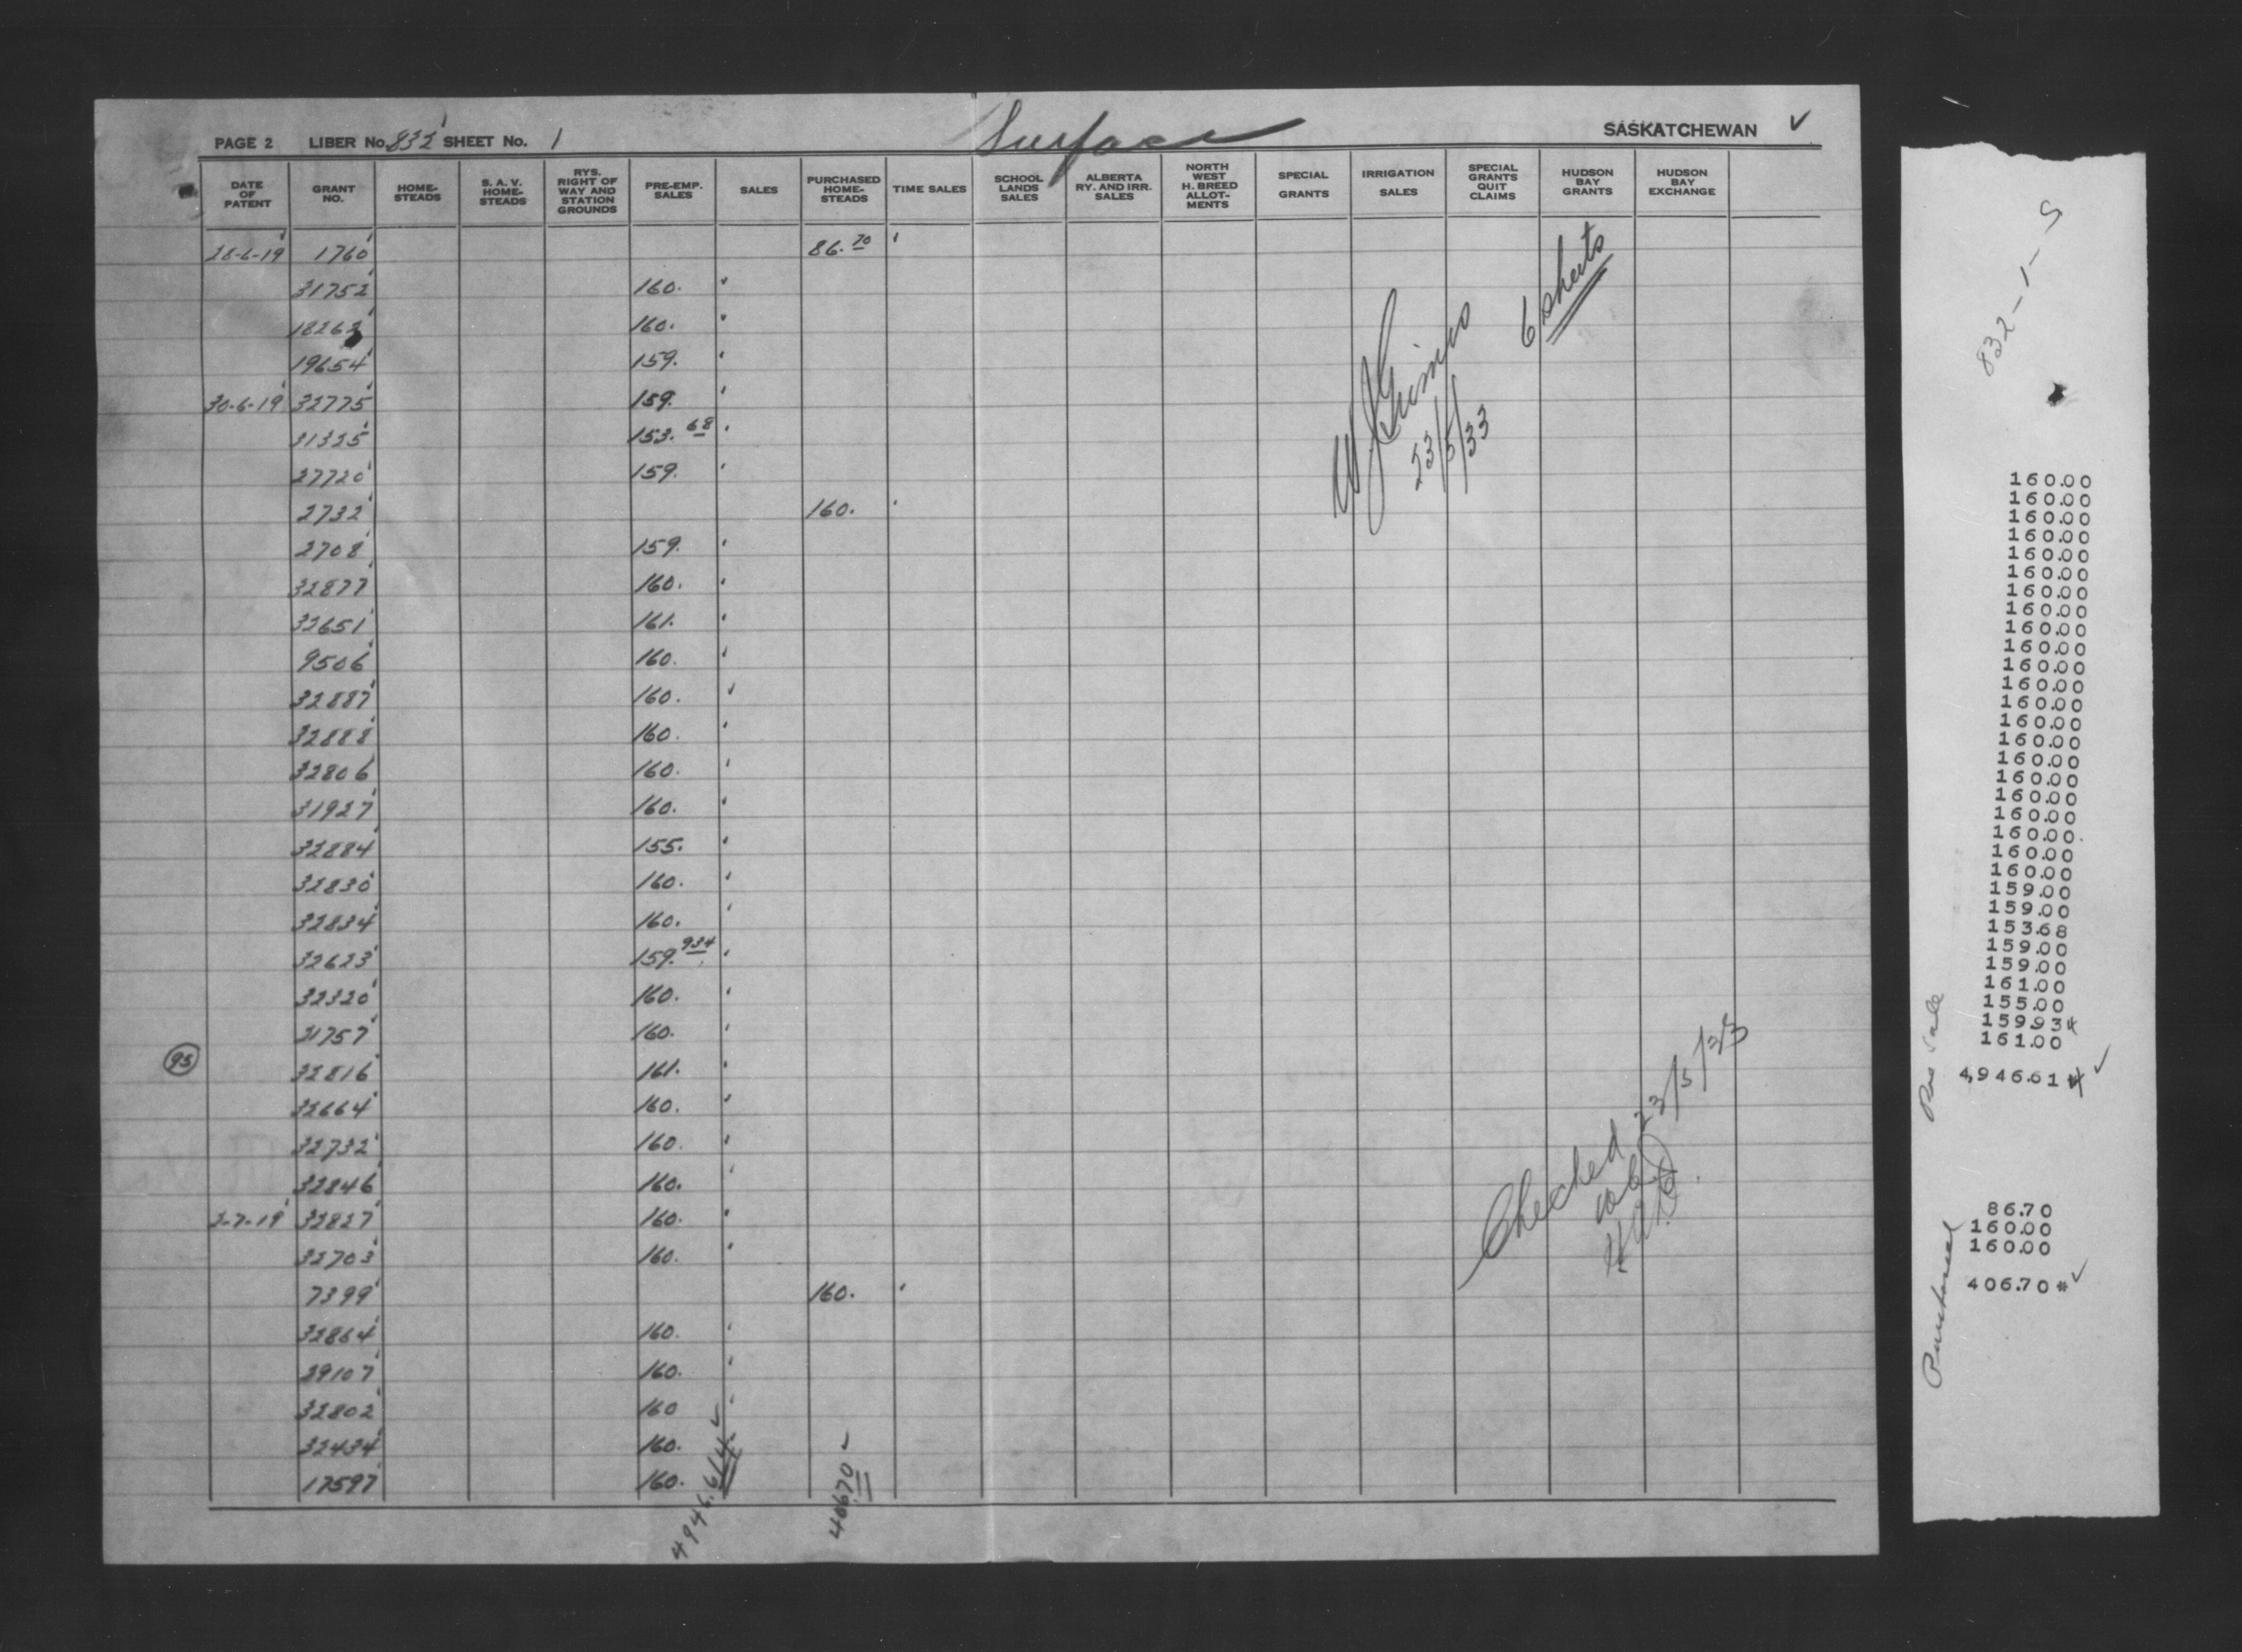 PAGE 2 LIBER No. 832 SHEET No. 1 Surface SASKATCHEWAN ✓
DATE OF PATENT GRANT NO. HOME-STEADS S. A. V. HOME-STEADS RYS. RIGHT OF WAY AND STATION GROUNDS PRE-EMP. SALES SALES PURCHASED HOME-STEADS TIME SALES SCHOOL LANDS SALES ALBERTA RY. AND IRR. SALES NORTH WEST H. BREED ALLOT-MENTS SPECIAL GRANTS IRRIGATION SALES SPECIAL GRANTS QUIT CLAIMS HUDSON BAY GRANTS HUDSON BAY EXCHANGE
28-6-19 1760 86.70
31752 160.
18262 160.
19654 159.
30-6-19 32775 159.
31325 153.68
27720 159.
2732 160.
2708 159.
32877 160.
32651 161.
9506 160.
32887 160.
32888 160.
32806 160.
31927 160.
32884 155.
32830 160.
32834 160.
32623 159.934
32320 160.
31757 160.
95 32816 161.
32664 160.
32732 160.
32846 160.
2-7-19 32827 160.
32703 160.
7399 160.
32864 160.
29107 160.
32802 160
32434 160.
17597 160.
4946.614 ✓
406.70 ✓
6 sheets
23/5/33
Checked 23/5/33
832-1-S
160.00
160.00
160.00
160.00
160.00
160.00
160.00
160.00
160.00
160.00
160.00
160.00
160.00
160.00
160.00
160.00
160.00
160.00
160.00
160.00
160.00
160.00
159.00
159.00
153.68
159.00
159.00
161.00
155.00
159.934
161.00
4,946.614 ✓
Pre Sale
86.70
160.00
160.00
406.70* ✓
Purchased